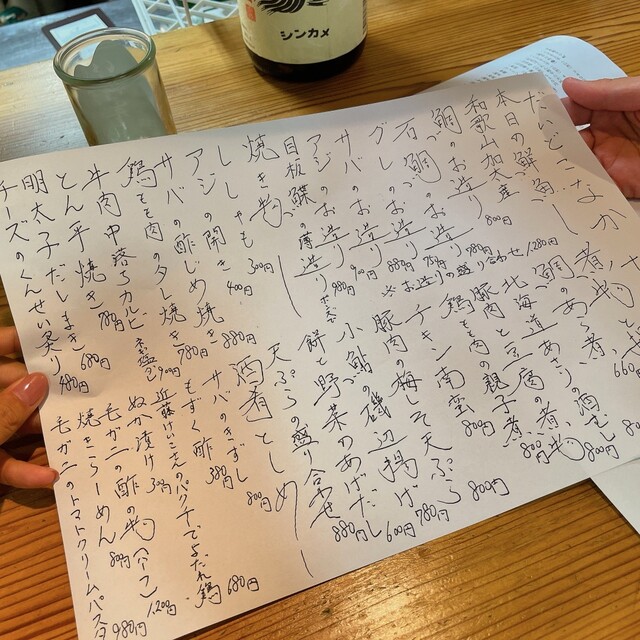 シンカメ
だいどこ なかし
本日の鮮魚
和歌山加太産
鯛のお造り 800円
石鯛のお造り
グレのお造り 880円
サバのお造り 900円
アジのお造り 980円
目板鰈の薄造り
※お造りの盛り合わせ 1280円
焼き物
ししゃも 300円
アジの開き 400円
サバの酢じめ焼き 880円
鶏もも肉のタレ焼き 780円
牛肉中落ちカルビ 900円
とん平焼き 780円
明太子だしまき 680円
チーズのくんせい炙り 480円
煮物
鯛のあら煮
北海道あこうの酒むし 800円
豚肉と豆腐の煮物 800円
鶏もも肉の親子煮 800円
チキン南蛮 800円
豚肉の梅しそ天ぷら 780円
小鮎の磯辺揚げ 600円
餅と野菜のあげだし 880円
天ぷらの盛り合せ
酒肴としめ
サバのきずし 800円
もずく酢 380円
近藤けいこさんのパクチーでよだれ鶏 680円
ぬか漬け 300円
毛ガニの酢の物 1200円
焼きらーめん 800円
毛ガニのトマトクリームパスタ 980円